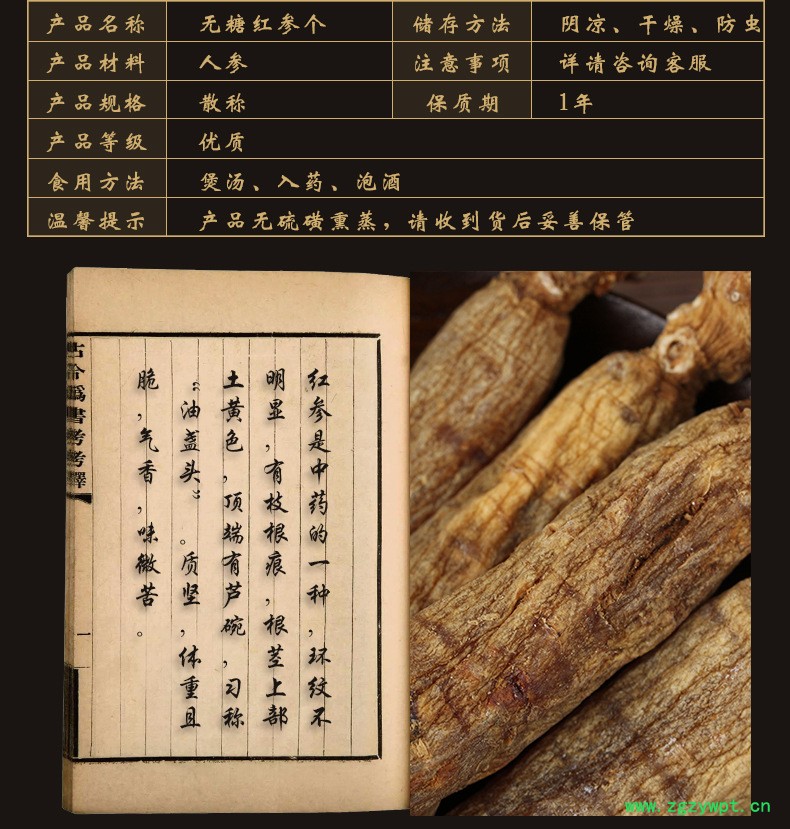 产品名称 无糖红参个 储存方法 阴凉、干燥、防虫
产品材料 人参 注意事项 详请咨询客服
产品规格 散称 保质期 1年
产品等级 优质
食用方法 煲汤、入药、泡酒
温馨提示 产品无硫磺熏蒸，请收到货后妥善保管
红参是中药的一种，环纹不
明显，有枝根痕，根茎上部
土黄色，顶端有芦碗，习称
“油盏头”。质坚，体重且
脆，气香，味微苦。
古今偽書考考釋
一
www.zgzywpt.cn